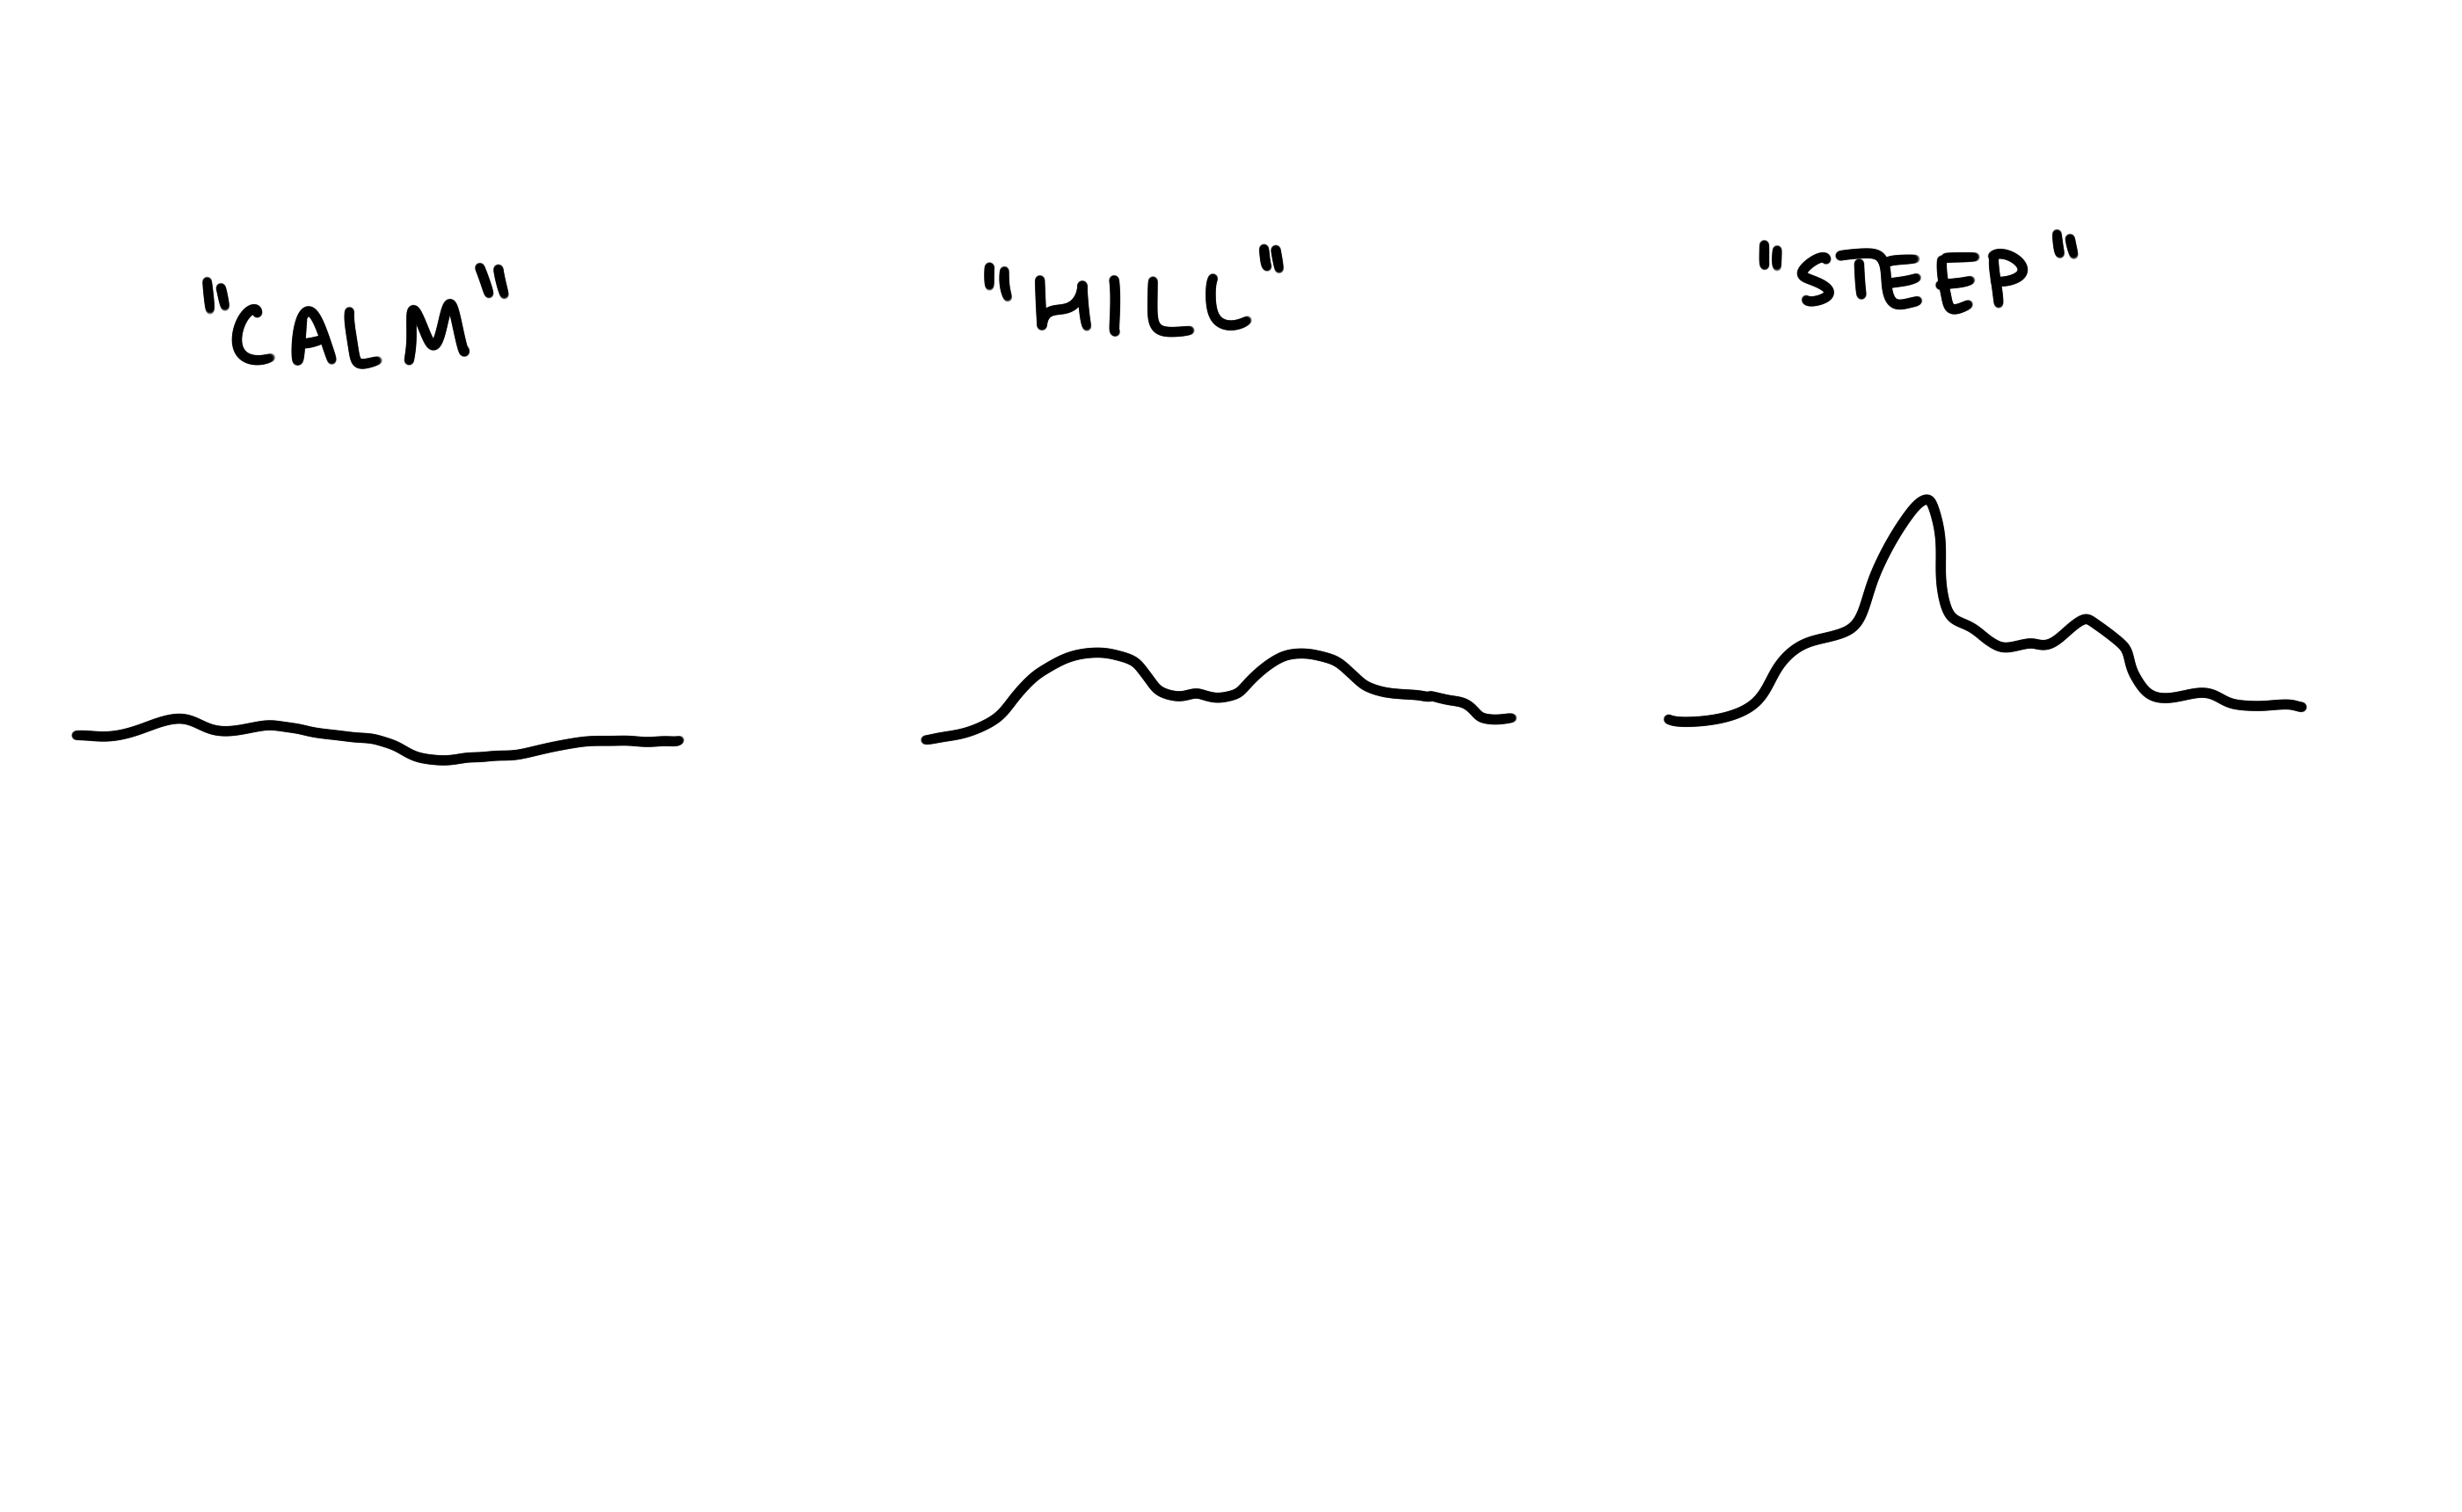 "CALM"
"HILL"
"STEEP"